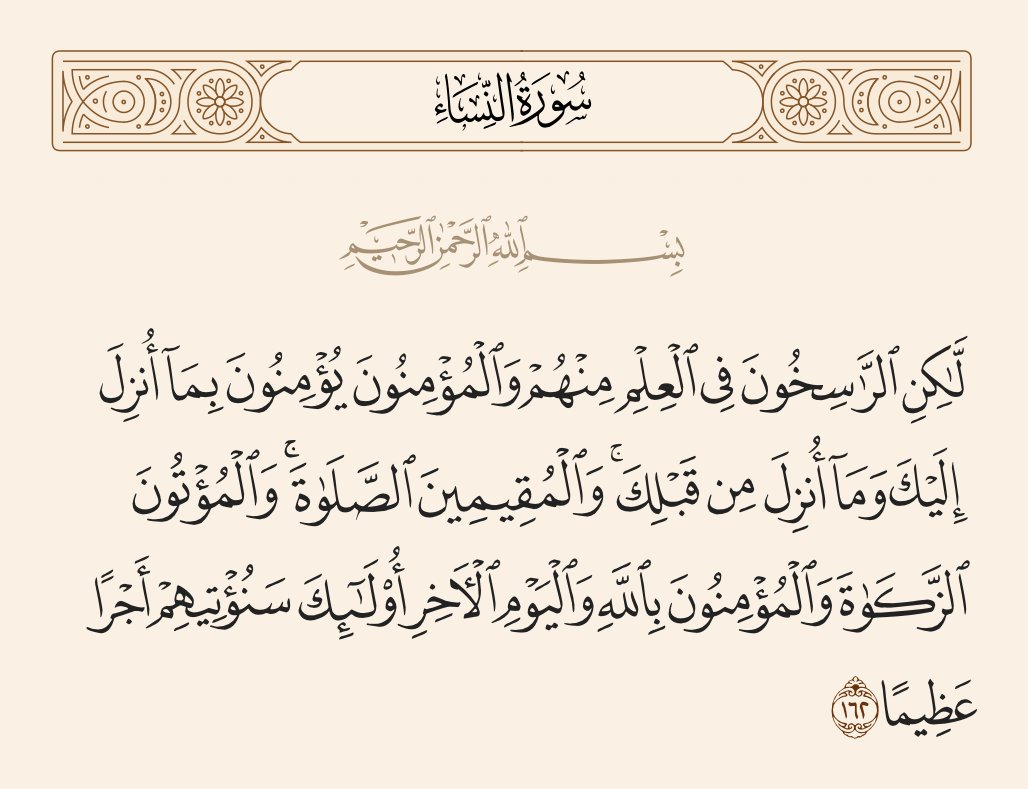 سُورَةُ النِّسَاءِ
بِسْمِ ٱللَّهِ ٱلرَّحْمَٰنِ ٱلرَّحِيمِ
لَّٰكِنِ ٱلرَّٰسِخُونَ فِى ٱلْعِلْمِ مِنْهُمْ وَٱلْمُؤْمِنُونَ يُؤْمِنُونَ بِمَآ أُنزِلَ
إِلَيْكَ وَمَآ أُنزِلَ مِن قَبْلِكَ ۚ وَٱلْمُقِيمِينَ ٱلصَّلَوٰةَ ۚ وَٱلْمُؤْتُونَ
ٱلزَّكَوٰةَ وَٱلْمُؤْمِنُونَ بِٱللَّهِ وَٱلْيَوْمِ ٱلْـَٔاخِرِ أُو۟لَـٰٓئِكَ سَنُؤْتِيهِمْ أَجْرًا
عَظِيمًا ١٦٢